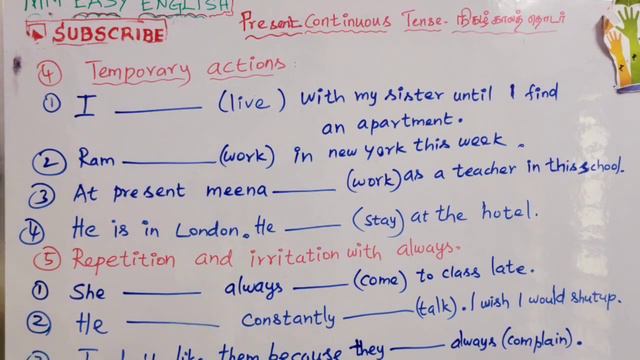 EASY ENGLISH
SUBSCRIBE
Present Continuous Tense - நிகழ் காலத் தொடர்
④ Temporary actions:
① I ______ (live) with my sister until I find
an apartment.
② Ram ______ (work) in new york this week.
③ At present meena ______ (work) as a teacher in this school.
④ He is in London. He ______ (stay) at the hotel.
⑤ Repetition and irritation with always.
① She ______ always ______ (come) to class late.
② He ______ constantly ______ (talk). I wish I would shutup.
I like them because they ______ always (complain).